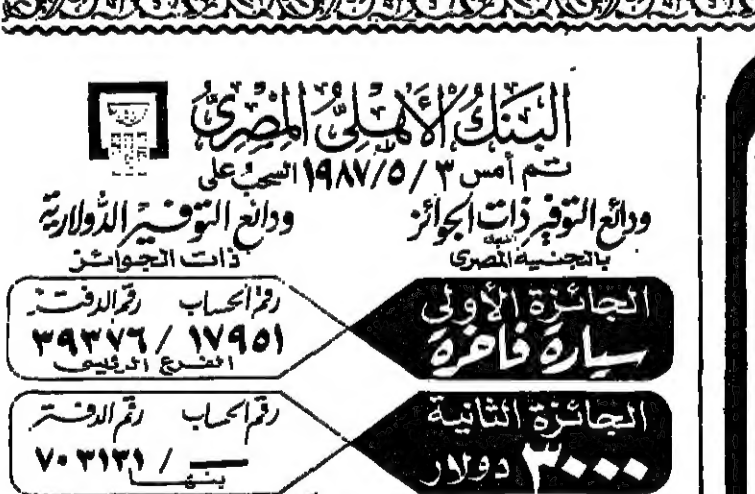 البنك الأهلي المصري
تم أمس ٣ / ٥ / ١٩٨٧ السحب على
ودائع التوفير ذات الجوائز
بالجنيه المصرى
ودائع التوفير الدولارية
ذات الجوائز
الجائزة الأولى
سيارة فاخرة
رقم الحساب رقم الدفتر
١٧٩٥١ / ٣٩٣٧٦
الفرع الرئيسى
الجائزة الثانية
٣٠٠٠ دولار
رقم الحساب رقم الدفتر
— / ٧٠٣١٣١
بنها